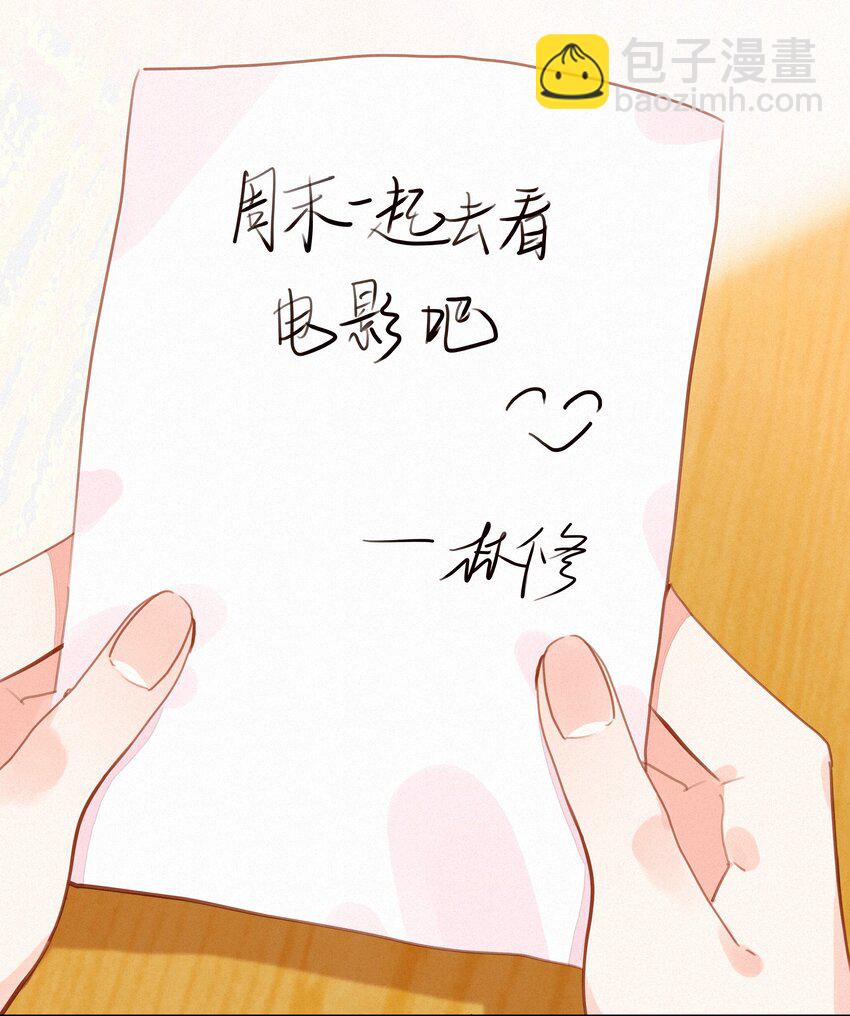 包子漫畫
baozimh.com
周末一起去看
电影吧
—林修